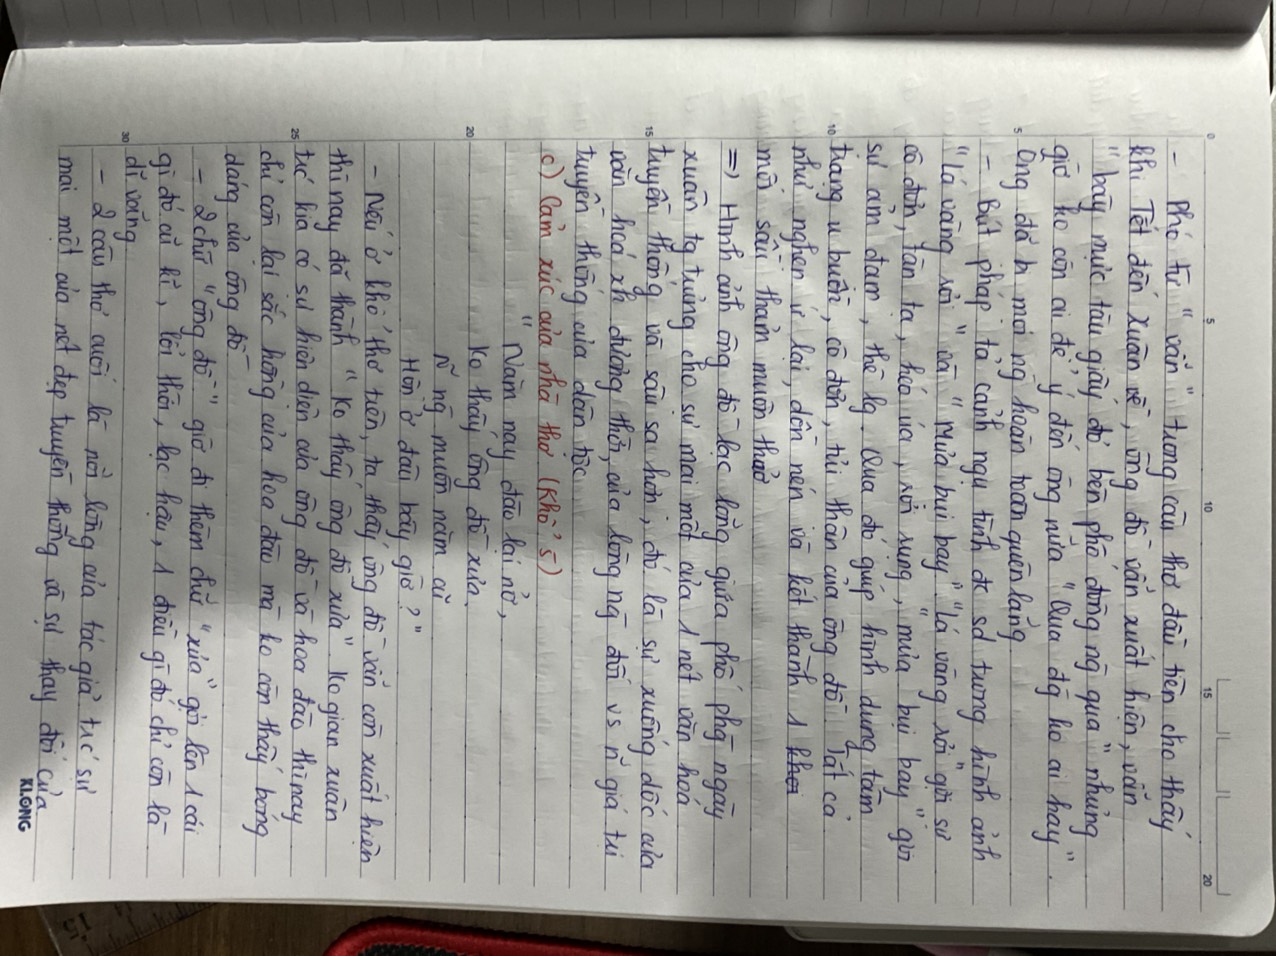 0 5 10 15 20
- Phó từ "vẫn" trong câu thơ đầu tiên cho thấy
khi Tết đến xuân về, ông đồ vẫn xuất hiện, vẫn
"bày mực tàu giấy đỏ bên phố đông ng qua" nhưng
giờ ko còn ai để ý đến ông nữa "Qua đg ko ai hay".
5 Ông đã bị mọi ng hoàn toàn quên lãng
- Bút pháp tả cảnh ngụ tình đc sd trong hình ảnh
"Lá vàng rơi" và "Mưa bụi bay". "Lá vàng rơi" gợi sự
cô đơn, tàn tạ, héo úa, rơi rụng, "mưa bụi bay" gợi
sự ảm đạm, thê lg. Qua đó giúp hình dung tâm
10 trạng u buồn, cô đơn, tủi thân của ông đồ. Tất cả
như nghẹn ứ lại, dồn nén và kết thành 1
mối sầu thảm muôn thuở
=> Hình ảnh ông đồ lạc lõng giữa phố phg ngày
xuân tg trưng cho sự mai một của 1 nét văn hoá
15 truyền thống và sâu sa hơn, đó là sự xuống dốc của
văn hoá xh đương thời, của lòng ng đối vs n~ giá trị
truyền thống của dân tộc
c) Cảm xúc của nhà thơ (Khổ 5)
"Năm nay đào lại nở,
20 Ko thấy ông đồ xưa.
N~ ng muôn năm cũ
Hồn ở đâu bây giờ?"
- Nếu ở khổ thơ trên, ta thấy ông đồ vẫn còn xuất hiện
thì nay đã thành "Ko thấy ông đồ xưa". Ko gian xuân
25 trc kia có sự hiện diện của ông đồ và hoa đào thì nay
chỉ còn lại sắc hồng của hoa đào mà ko còn thấy bóng
dáng của ông đồ
- 2 chữ "ông đồ" giờ đi thêm chữ "xưa" gợi lên 1 cái
gì đó cũ kĩ, lỗi thời, lạc hậu, 1 điều gì đó chỉ còn là
30 dĩ vãng
- 2 câu thơ cuối là nỗi lòng của tác giả trc sự
mai một của nét đẹp truyền thống và sự thay đổi của
KLONG